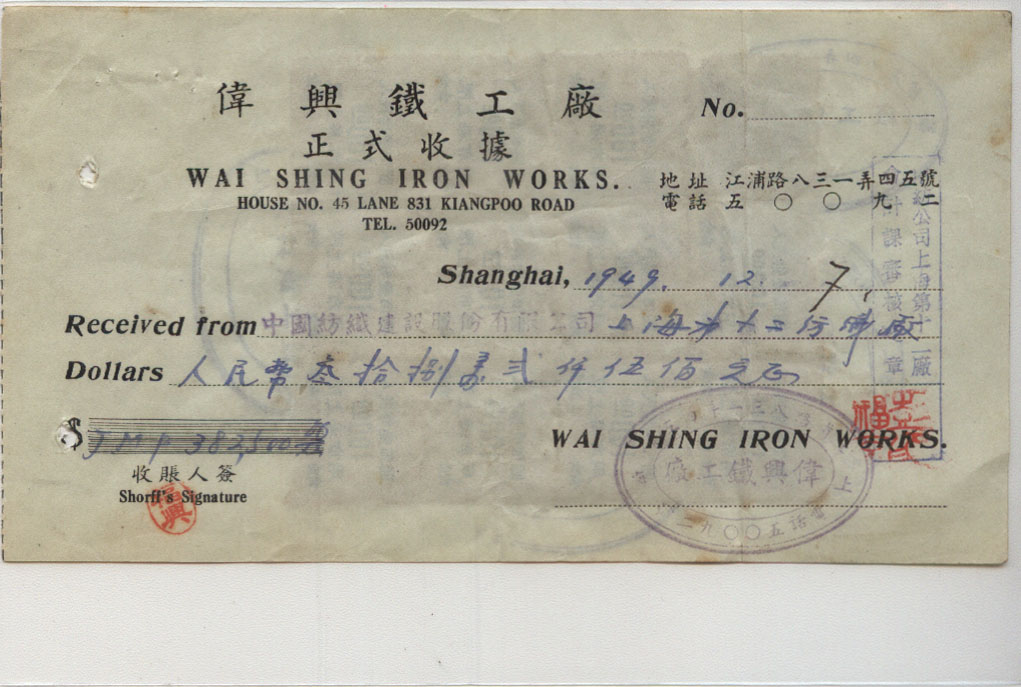 偉興鐵工廠
No.
正式收據
WAI SHING IRON WORKS.
地址 江浦路八三一弄四五號
HOUSE NO. 45 LANE 831 KIANGPOO ROAD
電話 五〇〇九二
TEL. 50092
Shanghai, 1949. 12. 7.
Received from 中國紡織建設股份有限公司 上海第十二紡織廠
Dollars 人民幣叁拾捌萬弍仟伍佰元正
$ JMP 382,500
WAI SHING IRON WORKS.
收賬人簽
Shorff's Signature
偉興鐵工廠
電話五〇〇九二
公司上海第十二廠
會計課審核章